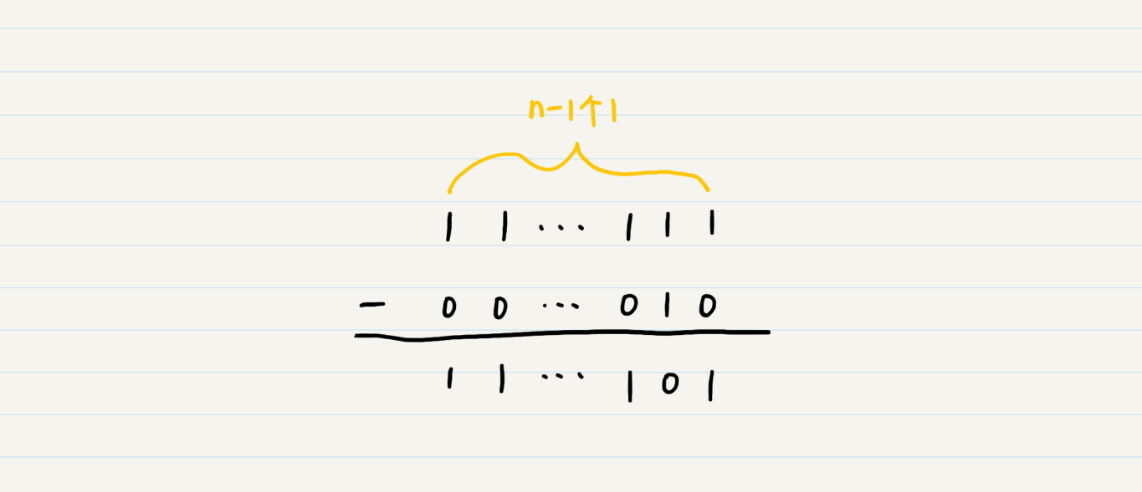 n-1个1
1 1 ... 1 1 1
- 0 0 ... 0 1 0
1 1 ... 1 0 1